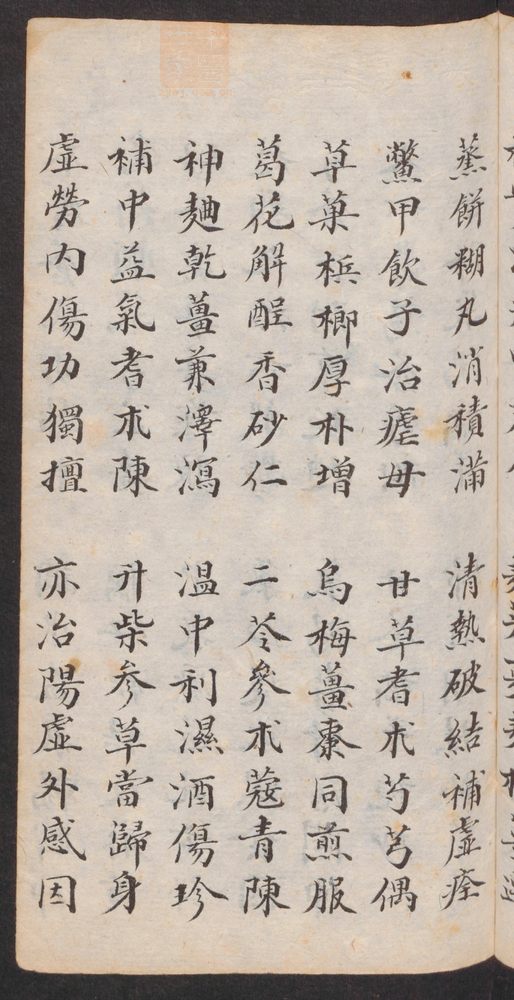 蒸餅糊丸消積滿 清熱破結補虛痊
鱉甲飲子治瘧毋 甘草耆朮芍芎偶
草菓梹榔厚朴增 烏梅薑棗同煎服
葛花解酲香砂仁 二苓參朮蔻青陳
神麯乾薑兼澤瀉 温中利濕酒傷珍
補中益氣耆朮陳 升柴参草當歸身
虛勞內傷功獨擅 亦治陽虛外感因